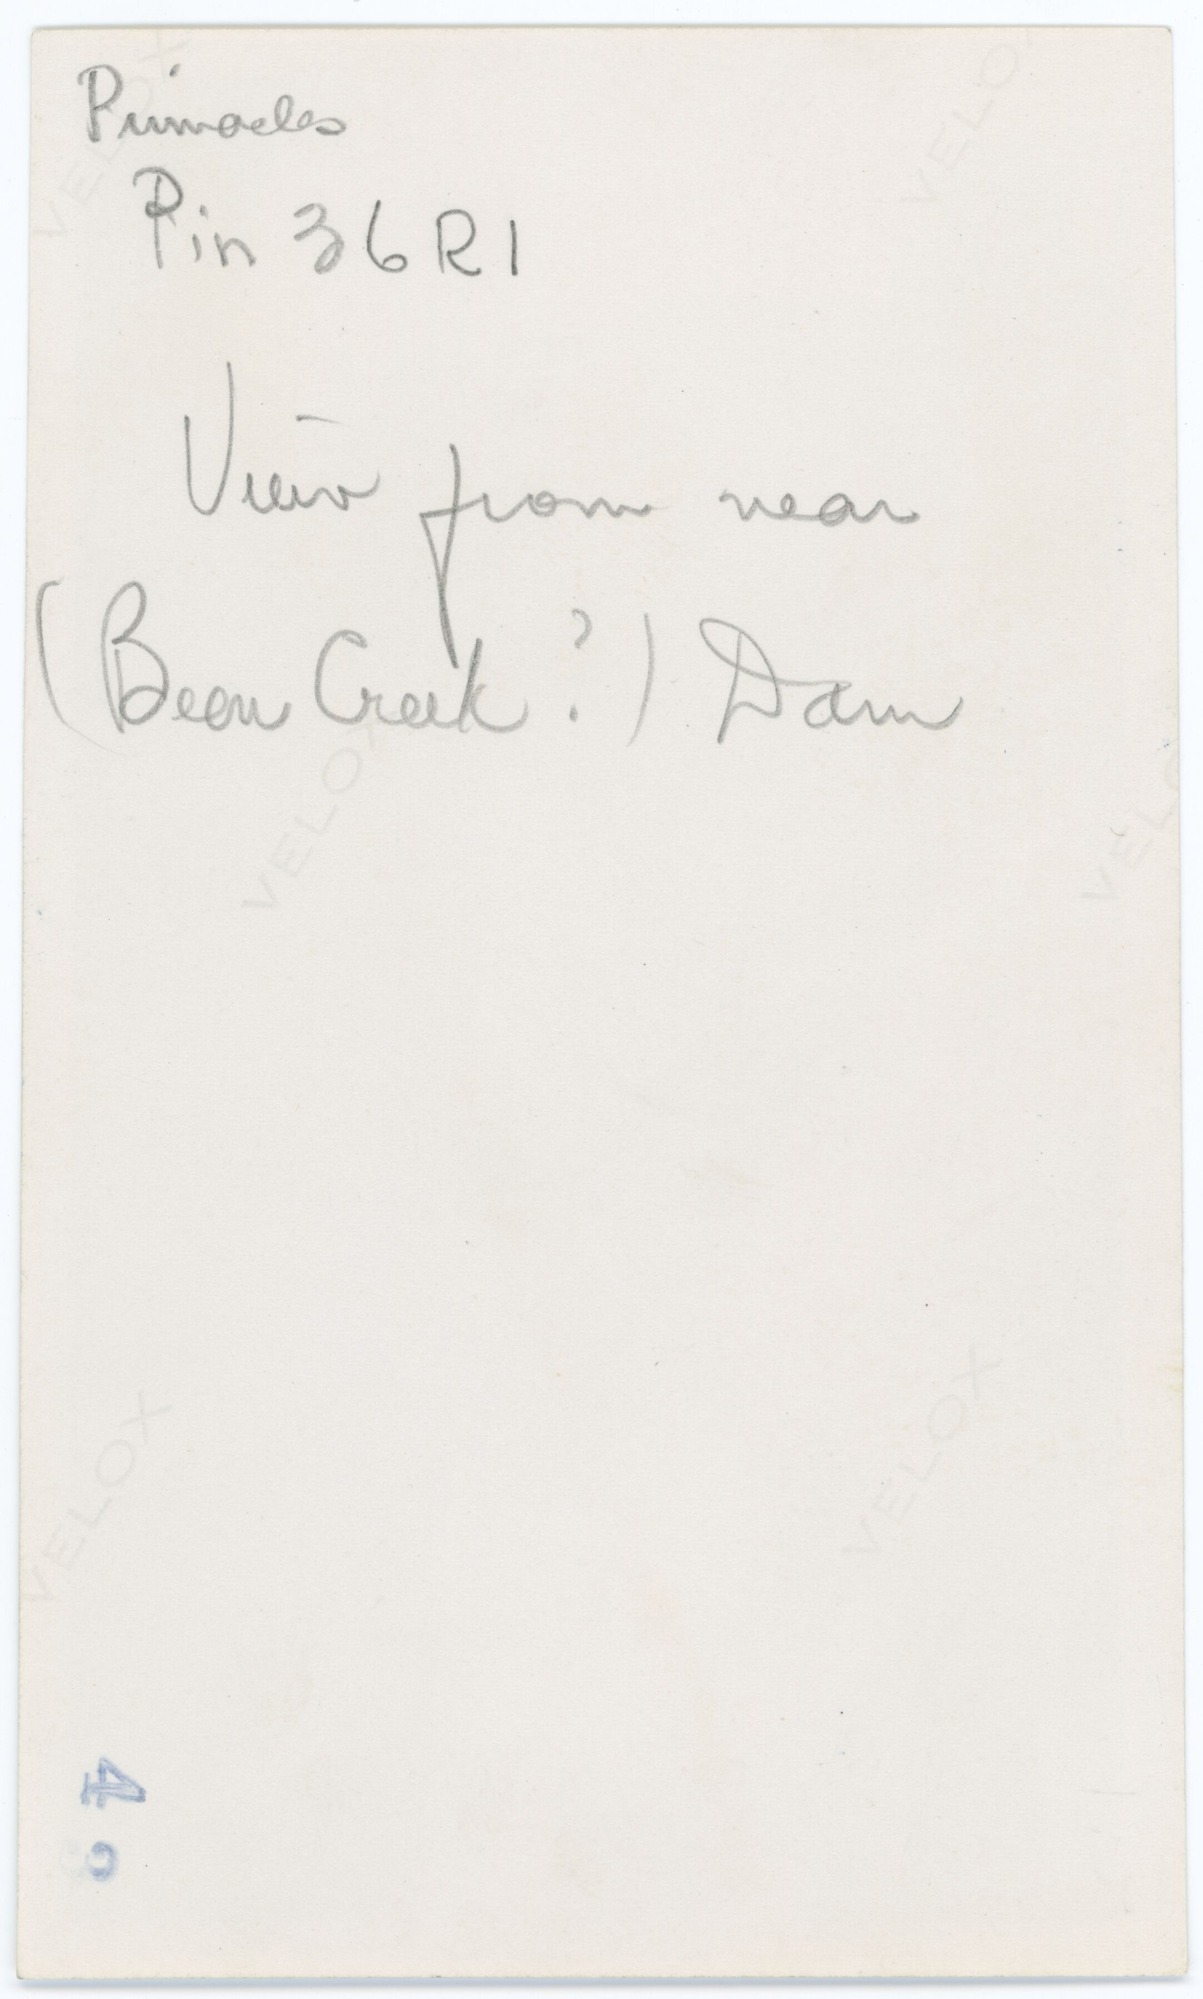 Pinnacles
Pin 36R1
View from near
(Bear Creek ?) Dam
VELOX
VELOX
VELOX
VELOX
VELOX
VELOX
4